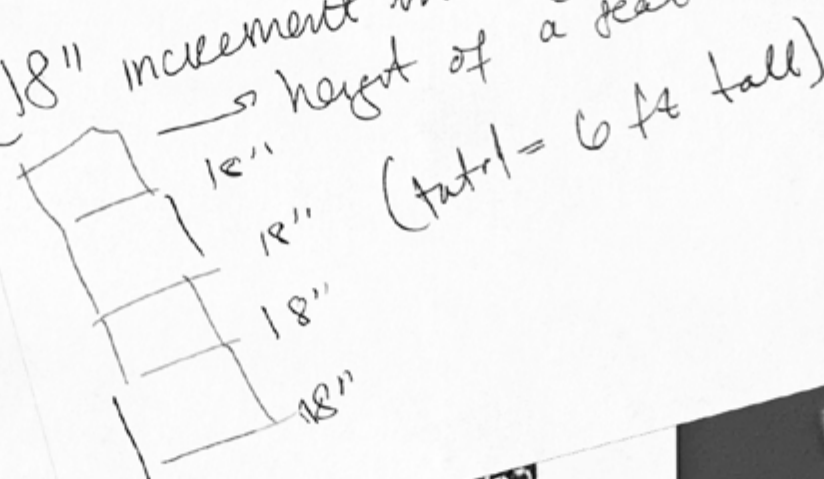 18" increment
→ height of a seat
18"
(total = 6 ft tall)
18"
18"
18"